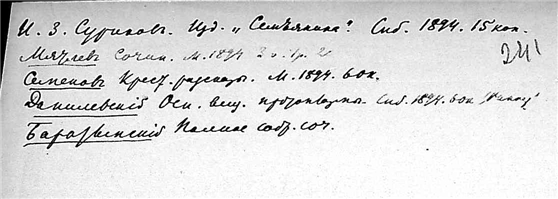 И. З. Суриковъ. Изд. „Семьянина". Спб. 1894. 15 коп.
241
Мятлевъ Сочин. М. 1894 2
Семеновъ Крест. рассказы. М. 1894. 60 к.
Данилевскій Осн. вещ. Спб. 1894. 60 к
Баратынскій Полное собр. соч.